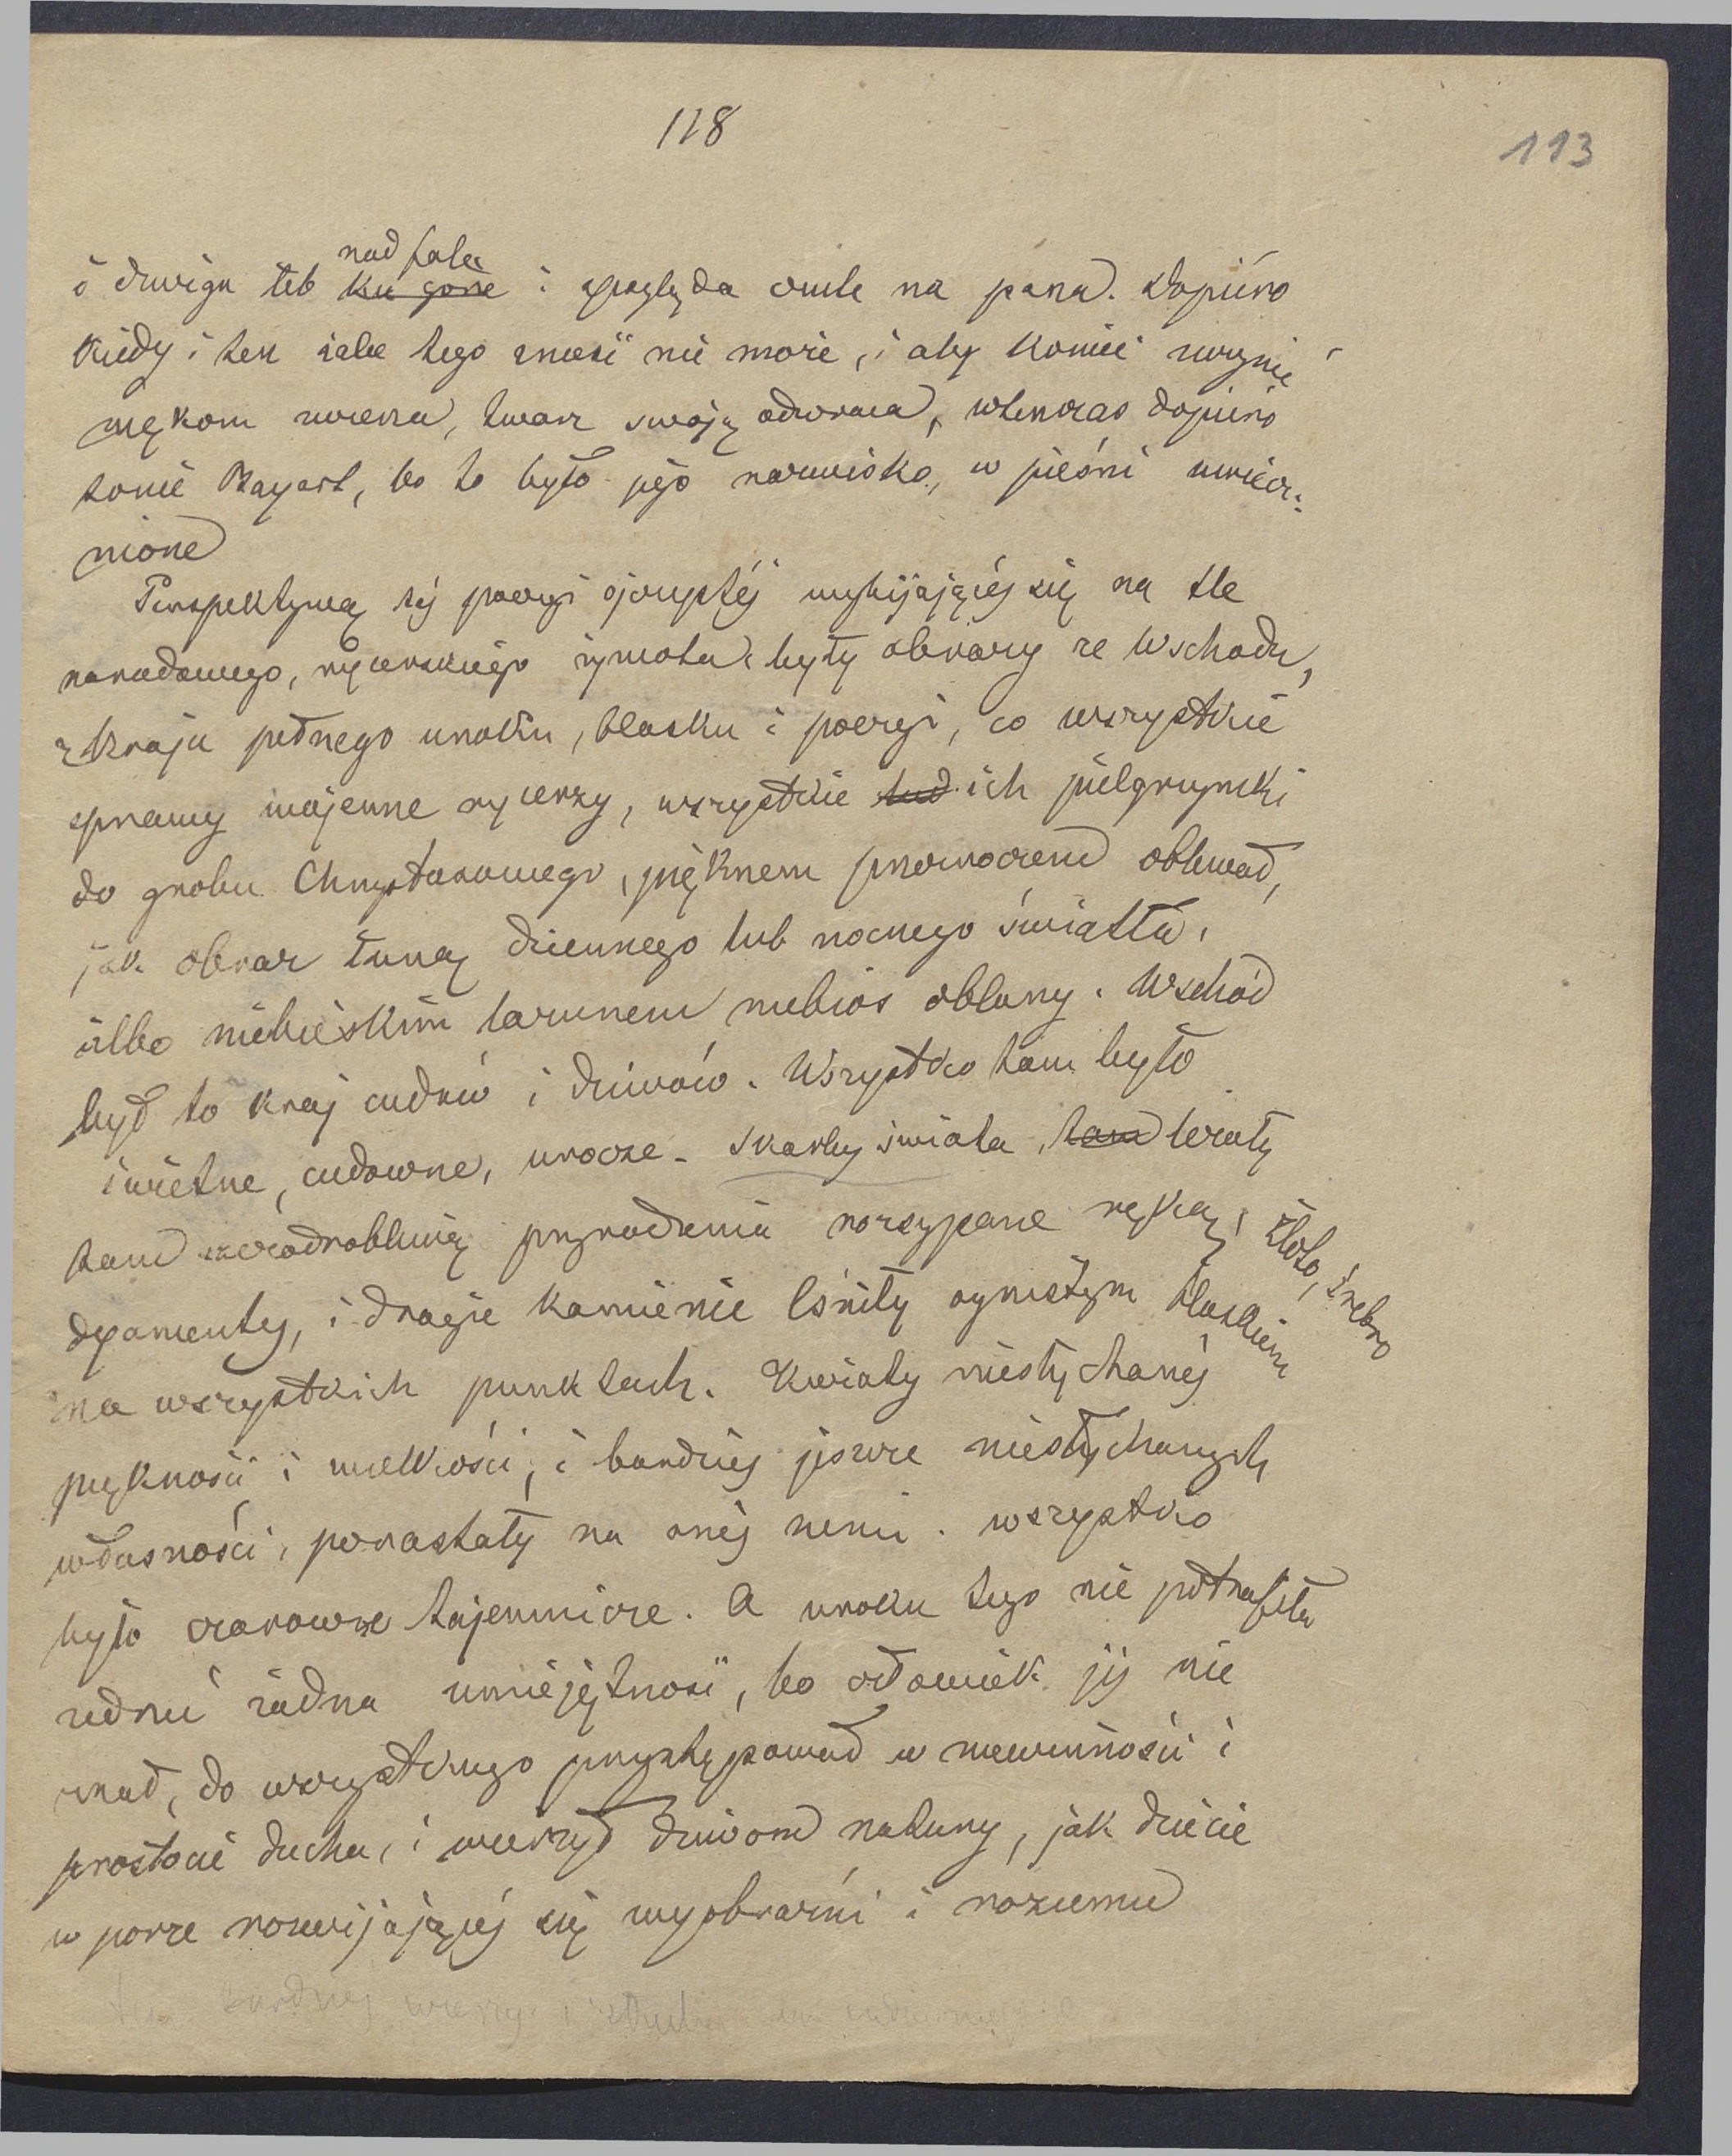 118
113
nad fale
i dzwiga łeb ku górze i spogląda czule na pana. Dopiéro
kiedy i ten żalu tego znieść nie może, i aby koniec rychły
mękom zwierza, twarz swoją odwraca, wtenczas dopiéro
tonie Bayart, bo to było jego nazwisko, w pieśni uwiecz-
nione
Perspektywą téj poezyi ojczystéj wybijającéj się na tle
narodowego, rycerskiego żywota były obrazy ze Wschodu,
z kraju pełnego uroku, blasku i poezyi, co wszystkie
sprawy wojenne rycerzy, wszystkie tud ich pielgrzymki
do grobu Chrystusowego, pięknem przezroczem oblewał,
jak obraz łuną dziennego lub nocnego światła,
albo niebieskim lazurem niebios oblany. Wschód
był to kraj cudów i dziwów. Wszystko tam było
świetne, cudowne, urocze. Skarby świata tam leżały
tam szczodrobliwą przyrodzenia rozsypane ręką, złoto, srebro
dyamenty, i drogie kamienie lśniły ognistym blaskiem
na wszystkich punktach. Kwiaty niesłychanéj
piękności i wielkości, i bardziéj jeszcze niesłychanych
własności, porastały na onéj ziemi. wszystko
było czarowne tajemnicze. A uroku tego nie potrafiła
zedrzéć żadna umiejętność, bo człowiek jéj nie
znał, do wszystkiego przystępował w niewinności i
prostocie ducha, i wierzył dziwom natury, jak dziécie
w porze rozwijającéj się wyobraźni i rozumu